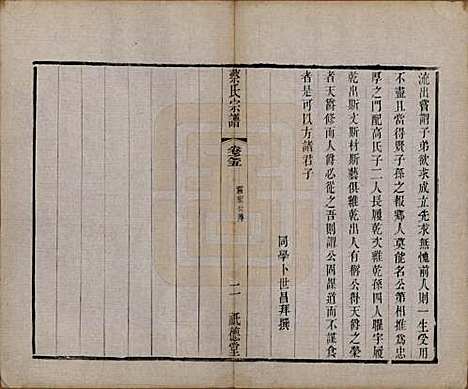 流出嘗謂子弟欲求成立先求無愧前人則一生受用
不盡且當得賢子之報鄉人莫能名公第相推為忠
厚之門配高氏子二人長履乾次維乾孫四人曜宇履
乾出斯文斯材斯藝俱維乾出人有稱公得天爵之榮
者天爵修而人爵必從之吾則謂公固謀道而不謀食
者是可以方諸君子
同學卜世昌拜撰
蔡氏宗譜
卷之五
二
祇德堂